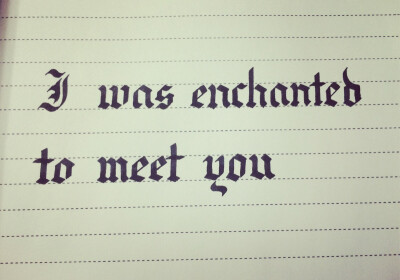 I was enchanted
to meet you